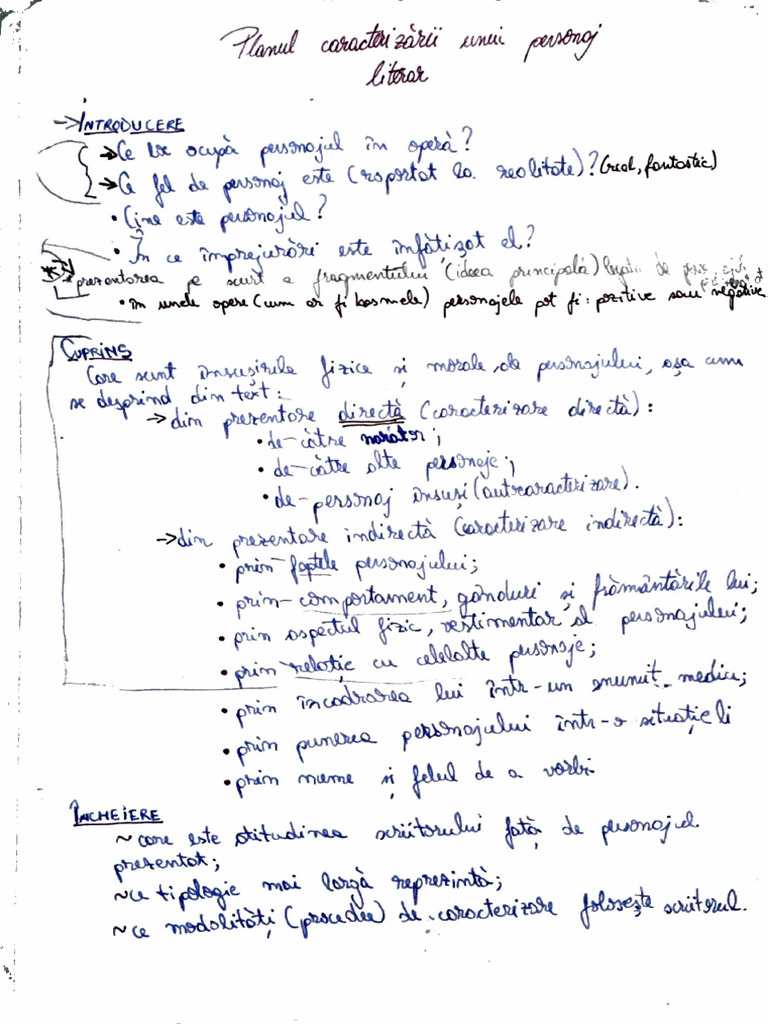 Planul caracterizării unui personaj
literar
→INTRODUCERE
→Ce loc ocupă personajul în operă?
→Ce fel de personaj este (raportat la realitate)? (real, fantastic)
• Cine este personajul?
• În ce împrejurări este înfățișat el?
prezentarea pe scurt a fragmentului (ideea principală) legată de
• în unele opere (cum ar fi basmele) personajele pot fi: pozitive sau negative
CUPRINS
Care sunt însușirile fizice și morale ale personajului, așa cum
se desprind din text:
→ din prezentare directă (caracterizare directă):
• de-către narator;
• de-către alte personaje;
• de-personaj însuși (autocaracterizare).
→din prezentare indirectă (caracterizare indirectă):
• prin faptele personajului;
• prin-comportament, gânduri și frământările lui;
• prin aspectul fizic, vestimentar al personajului;
• prin relație cu celelalte personaje;
• prin încadrarea lui într-un anumit mediu;
• prin punerea personajului într-o situație
• prin nume și felul de a vorbi.
ÎNCHEIERE
~ care este atitudinea scriitorului față de personajul
prezentat;
~ce tipologie mai largă reprezintă;
~ce modalități (procedee) de caracterizare folosește scriitorul.